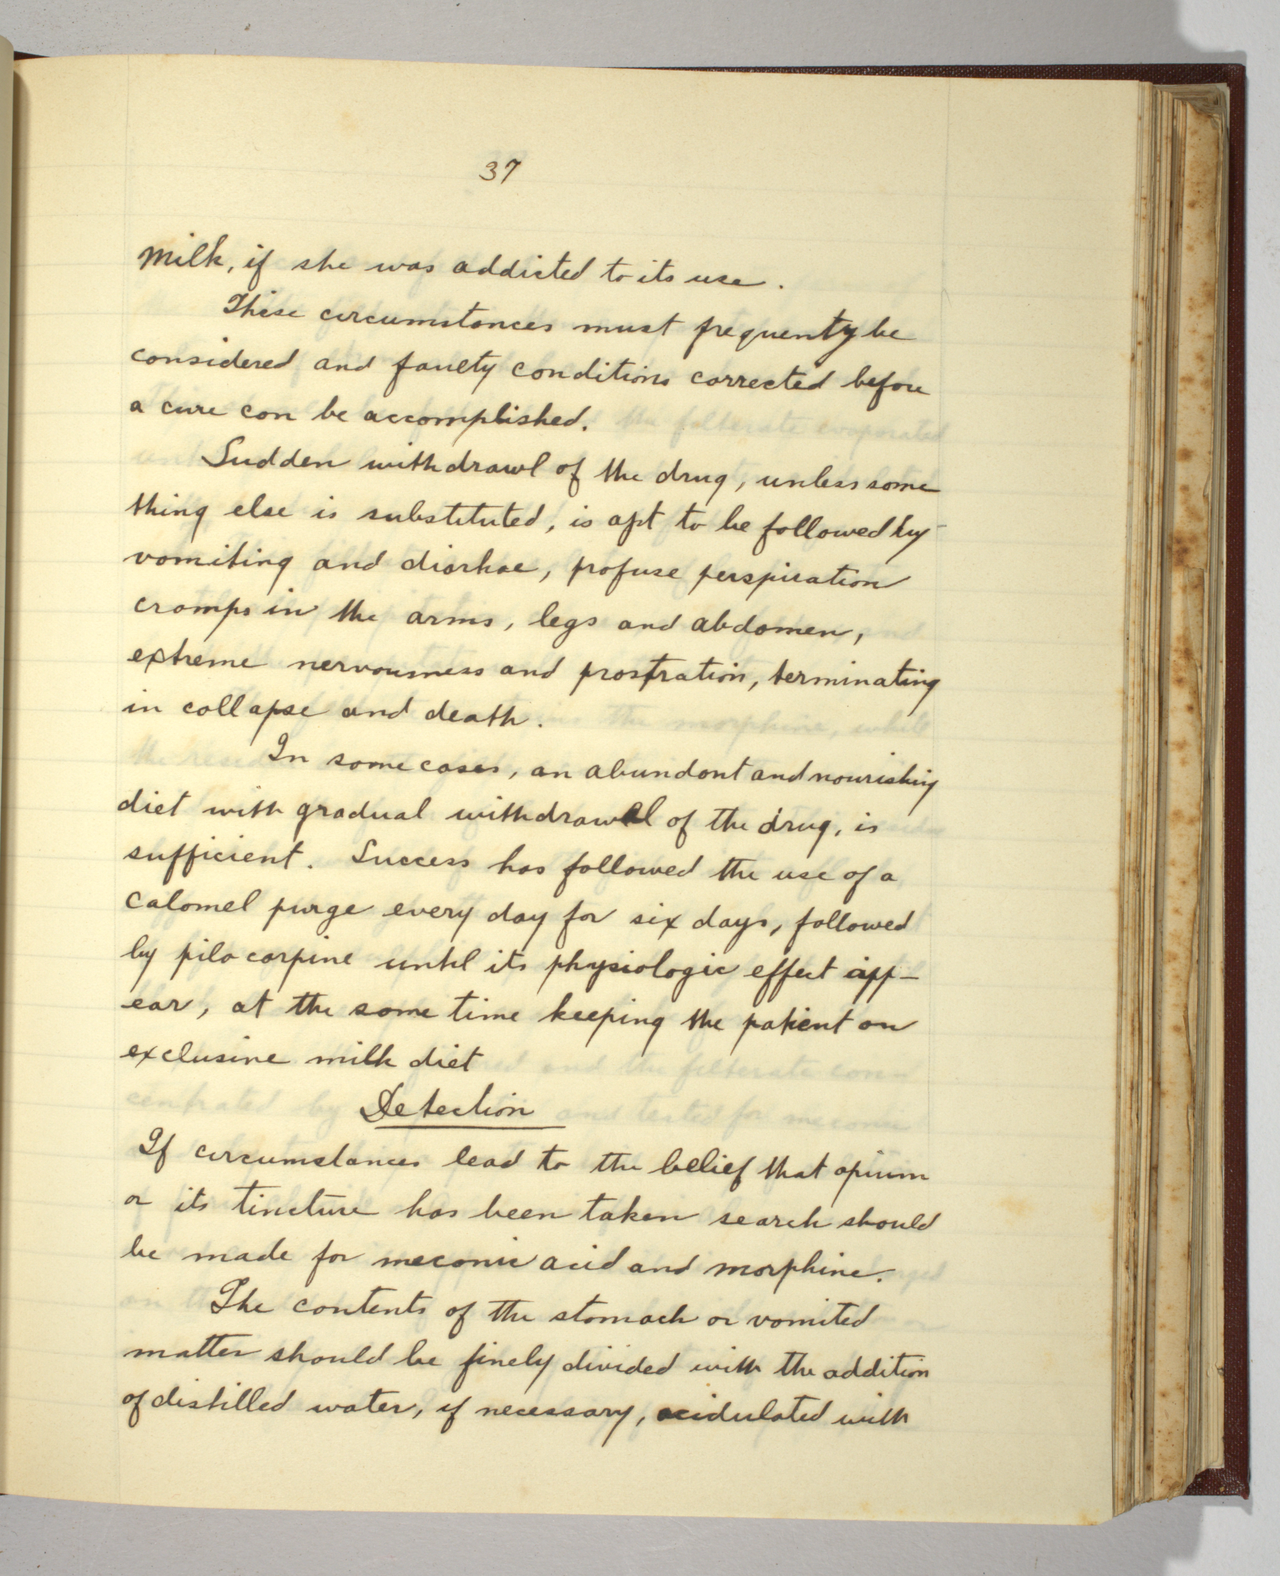 37
milk, if she was addicted to its use.
These circumstances must frequenty be
considered and faulty conditions corrected before
a cure can be accomplished.
Sudden withdrawl of the drug, unless some
thing else is substituted, is apt to be followed by
vomiting and diorhae, profuse perspiration
cramps in the arms, legs and abdomen,
extreme nervousness and prostration, terminating
in collapse and death.
In some cases, an abundant and nourishing
diet with gradual withdrawal of the drug, is
sufficient. Success has followed the use of a
calomel purge every day for six days, followed
by pilocarpine until its physiologic effect app-
ear, at the same time keeping the patient on
exclusive milk diet
Detection
If circumstances lead to the belief that opium
or its tincture has been taken search should
be made for meconic acid and morphine.
The contents of the stomach or vomited
matter should be finely divided with the addition
of distilled water, if necessary, acidulated with